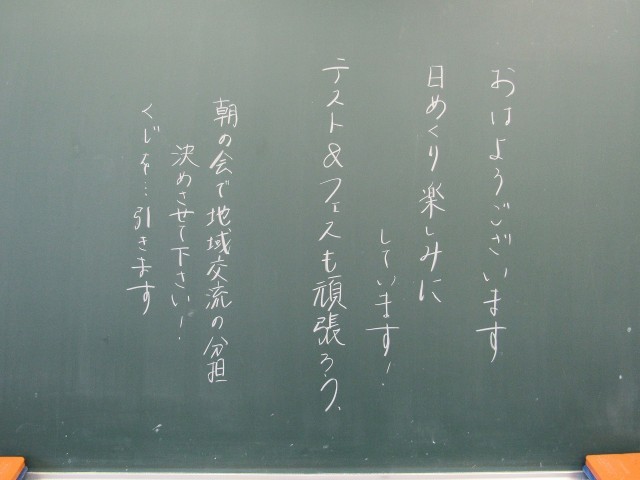 おはようございます
日めくり楽しみに
しています!
テスト&フェスも頑張ろう、
朝の会で地域交流の分担
決めさせて下さい!
くじを…引きます